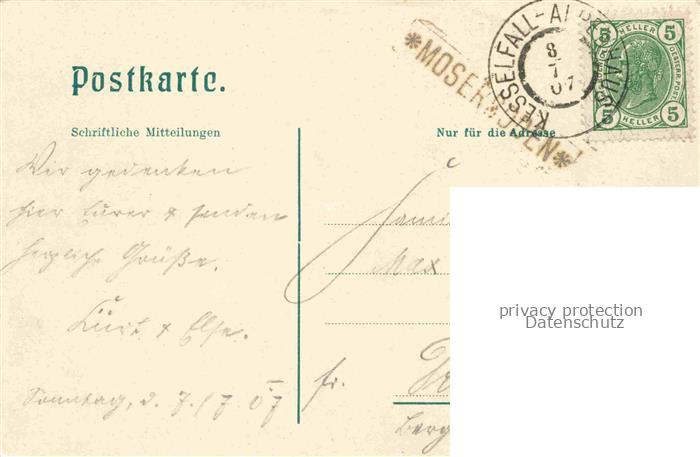 Postkarte.
Schriftliche Mitteilungen
Nur für die Adresse
KESSELFALL-ALPENHAUS
8/7 07
*MOSERBODEN*
5 HELLER 5
OESTERR. POST
5 HELLER 5
Wir gedenken
hier Eurer & senden
herzliche Grüße.
Kurt & Else.
Sonntag, d. 7./7. 07
Fami
Max
fr.
Berg
privacy protection
Datenschutz